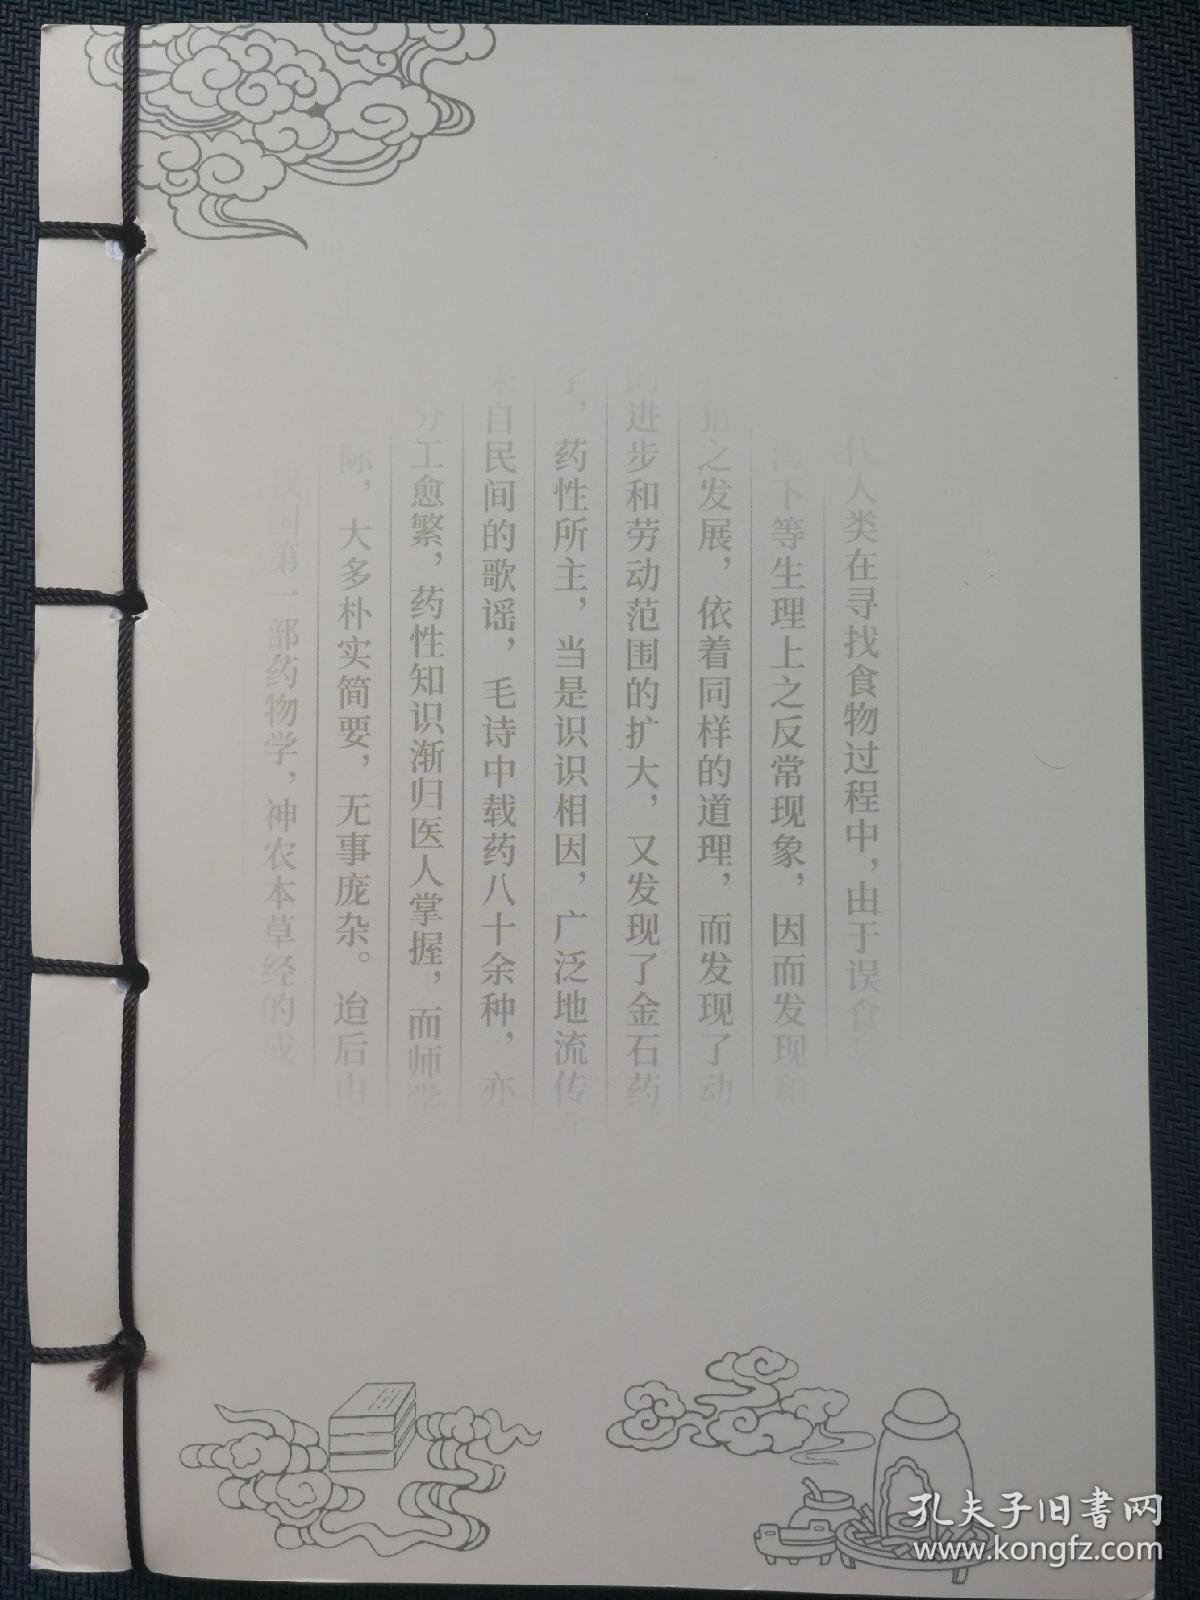 代人类在寻找食物过程中，由于误食
下等生理上之反常现象，因而发现和
猎之发展，依着同样的道理，而发现了动物
的进步和劳动范围的扩大，又发现了金石药
学，药性所主，当是识识相因，广泛地流传在
来自民间的歌谣，毛诗中载药八十余种，亦
分工愈繁，药性知识渐归医人掌握，而师学
之际，大多朴实简要，无事庞杂。迨后由
我国第一部药物学，神农本草经的成
孔夫子旧書网
www.kongfz.com